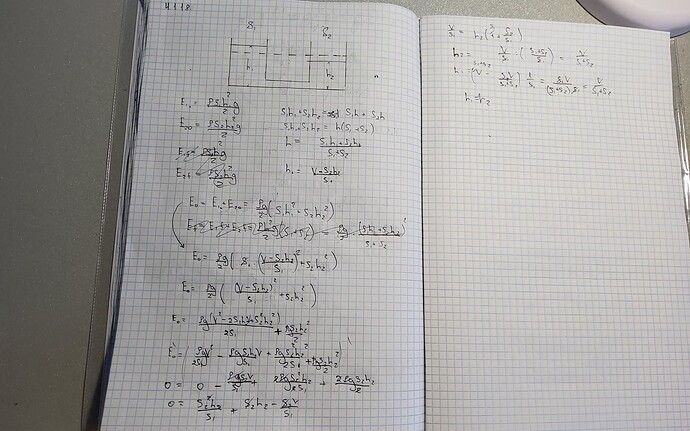 4.118
S₁ S₂
h₁ h₂
E₁₀ = ρS₁h₁²g/2 S₁h₁+S₂h₂ = S₁h + S₂h
E₂₀ = ρS₂h₂²g/2 S₁h₁+S₂h₂ = h(S₁+S₂)
E₁f = ρS₁h²g/2 h = (S₁h₁+S₂h₂)/(S₁+S₂)
E₂f = ρS₂h²g/2 h₁ = (V-S₂h₂)/S₁
E₀ = E₁₀+E₂₀ = ρg/2 (S₁h₁²+S₂h₂²)
Ef = E₁f+E₂f = ρh²g/2 (S₁+S₂) = ρg/2 (S₁h₁+S₂h₂)²/(S₁+S₂)
E₀ = ρg/2 (S₁ ((V-S₂h₂)/S₁)² + S₂h₂²)
E₀ = ρg/2 ((V-S₂h₂)²/S₁ + S₂h₂²)
E₀ = ρg(V²-2S₂h₂V+S₂²h₂²)/2S₁ + ρgS₂h₂²/2
E₀' = (ρgV²/2S₁ - ρgS₂h₂V/S₁ + ρgS₂²h₂²/2S₁ + ρgS₂h₂²/2)'
0 = 0 - ρgS₂V/S₁ + 2ρgS₂²h₂/2S₁ + 2ρgS₂h₂/2
0 = S₂²h₂/S₁ + S₂h₂ - S₂V/S₁
V/S₁ = h₂(S₁/S₁ + S₂/S₁)
h₂ = V/S₁ · (S₁+S₂/S₁) = V/(S₁+S₂)
h₁ = (V - S₂V/(S₁+S₂)) 1/S₁ = S₁V/(S₁+S₂)S₁ = V/(S₁+S₂)